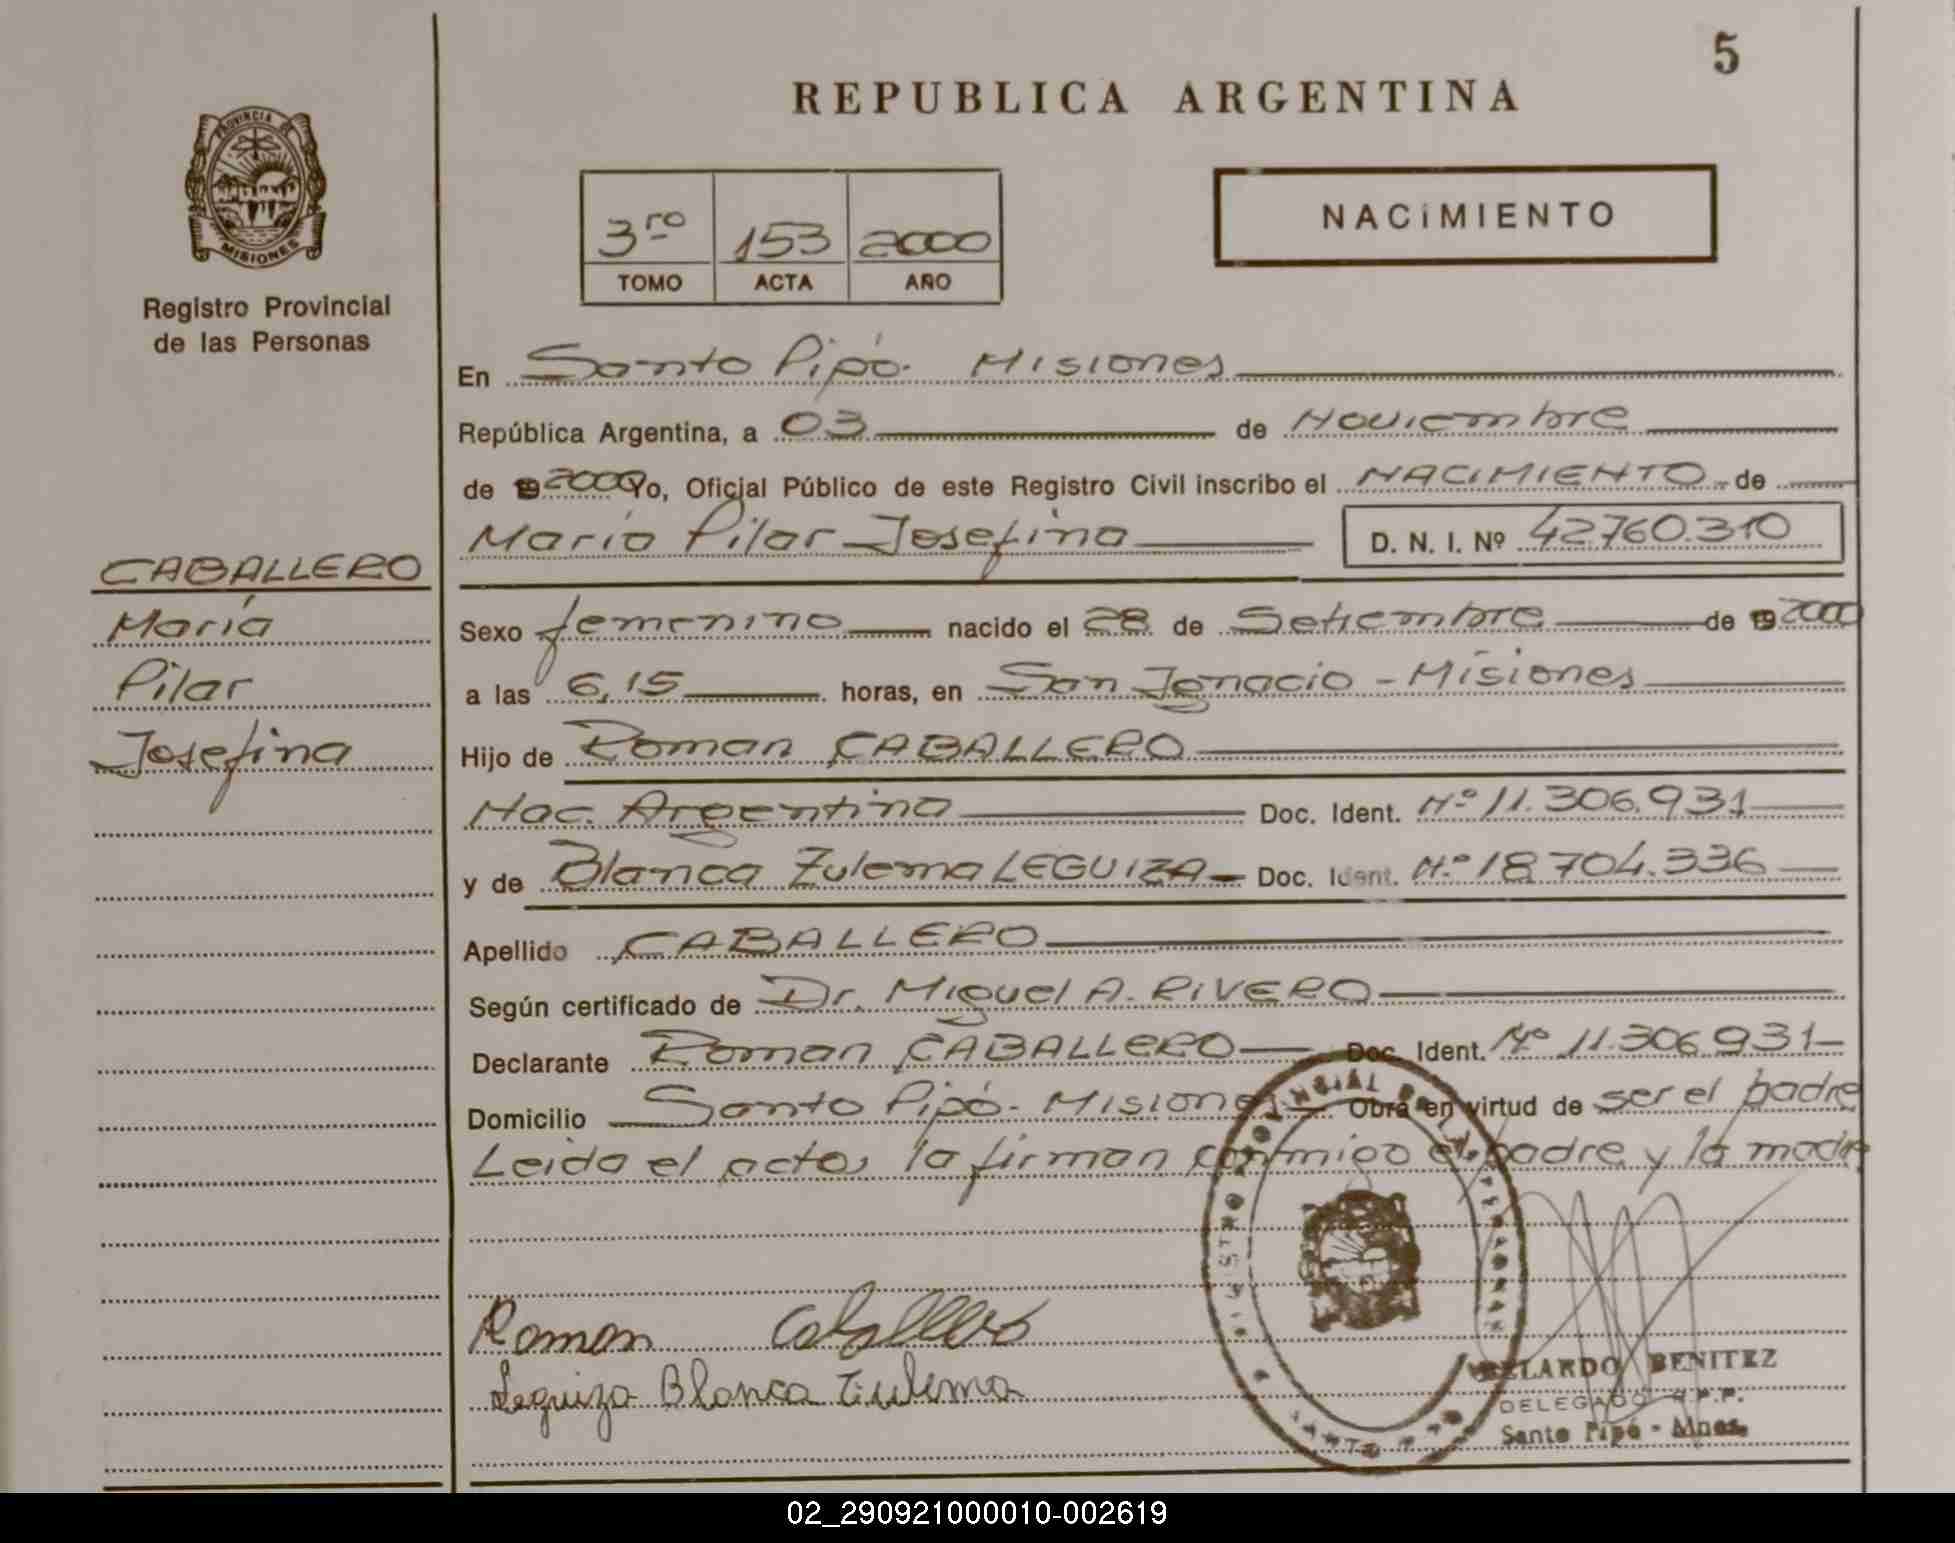 5
REPUBLICA ARGENTINA
PROVINCIA DE
MISIONES
Registro Provincial
de las Personas
3ro 153 2000
TOMO ACTA AÑO
NACIMIENTO
En Santo Pipó. Misiones
República Argentina, a 03 de Noviembre
de 19 2000 Yo, Oficial Público de este Registro Civil inscribo el NACIMIENTO de
María Pilar Josefina D. N. I. Nº 42.760.310
CABALLERO
María
Pilar
Josefina
Sexo femenino nacido el 28 de Setiembre de 19 2000
a las 6,15 horas, en San Ignacio - Misiones
Hijo de Roman CABALLERO
Nac. Argentina Doc. Ident. Nº 11.306.931
y de Blanca Zulema LEGUIZA Doc. Ident. Nº 18.704.336
Apellido CABALLERO
Según certificado de Dr. Miguel A. RIVERO
Declarante Roman CABALLERO Doc. Ident. Nº 11.306.931
Domicilio Santo Pipó - Misiones Obra en virtud de ser el padre
Leida el acta, la firman conmigo el padre y la madre
Roman Caballero
Leguiza Blanca Zulema
BENITEZ
DELEGADO R.P.P.
Santo Pipó - Mnes.
02_290921000010-002619